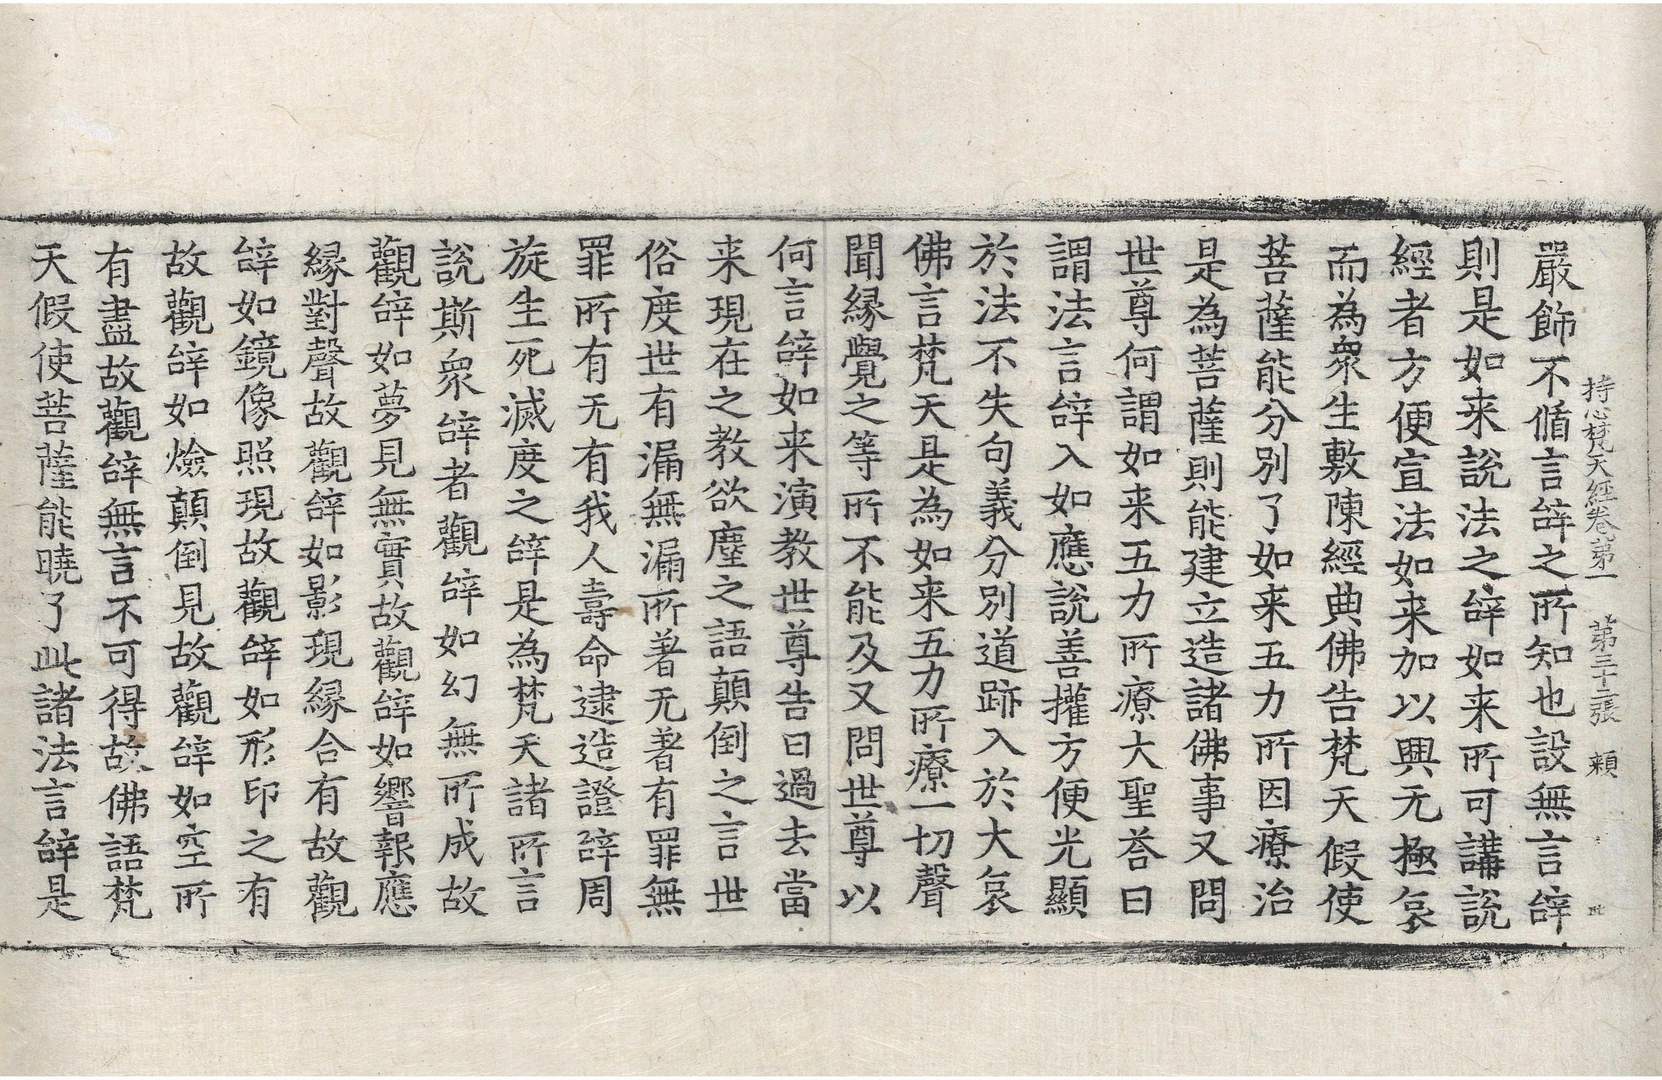 持心梵天經卷第一 第三十二張 賴
嚴飾不循言辞之所知也設無言辞
則是如来說法之辞如来所可講說
經者方便宣法如来加以興无極哀
而為衆生敷陳經典佛告梵天假使
菩薩能分別了如来五力所因療治
是為菩薩則能建立造諸佛事又問
世尊何謂如来五力所療大聖荅曰
謂法言辞入如應說善權方便光顯
於法不失句義分別道跡入於大哀
佛言梵天是為如来五力所療一切聲
聞緣覺之等所不能及又問世尊以
何言辞如来演教世尊告曰過去當
来現在之教欲塵之語顛倒之言世
俗度世有漏無漏所著无著有罪無
罪所有无有我人壽命逮造證辞周
旋生死滅度之辞是為梵天諸所言
說斯衆辞者觀辞如幻無所成故
觀辞如夢見無實故觀辞如響報應
緣對聲故觀辞如影現緣合有故觀
辞如鏡像照現故觀辞如形印之有
故觀辞如燄顛倒見故觀辞如空所
有盡故觀辞無言不可得故佛語梵
天假使菩薩能曉了此諸法言辞是